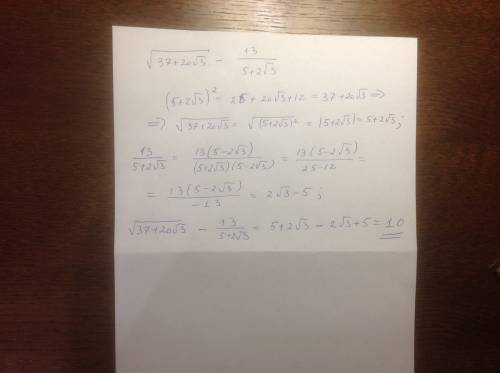 √(37+20√3) − 13/(5+2√3)
(5+2√3)² = 25+20√3+12 = 37+20√3 ⇒
⇒ √(37+20√3) = √((5+2√3)²) = |5+2√3| = 5+2√3;
13/(5+2√3) = 13(5−2√3)/((5+2√3)(5−2√3)) = 13(5−2√3)/(25−12) =
= 13(5−2√3)/(−13) = 2√3−5;
√(37+20√3) − 13/(5+2√3) = 5+2√3−2√3+5 = 10